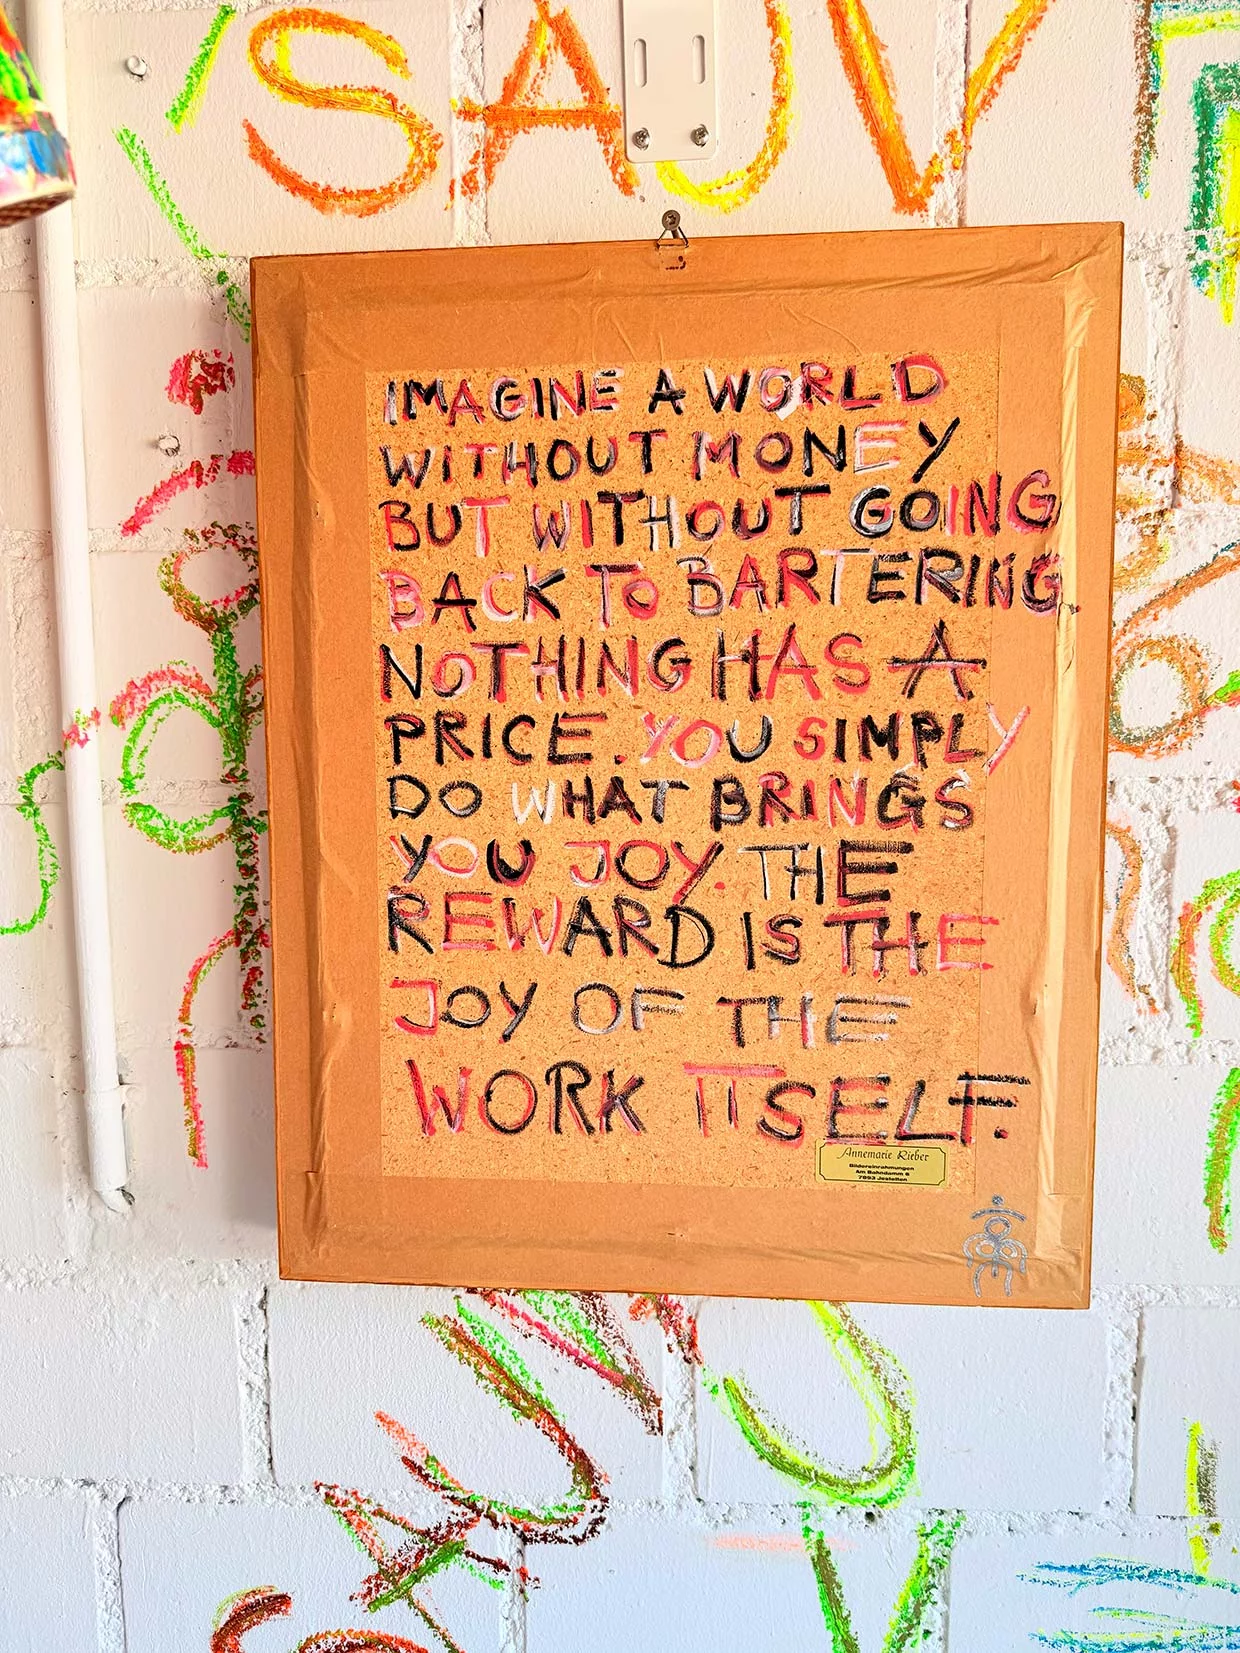 SAUV
IMAGINE A WORLD
WITHOUT MONEY
BUT WITHOUT GOING
BACK TO BARTERING.
NOTHING HAS A
PRICE. YOU SIMPLY
DO WHAT BRINGS
YOU JOY. THE
REWARD IS THE
JOY OF THE
WORK ITSELF.
Annemarie Rieber
Bildereinrahmungen
Am Bahndamm 6
7893 Jestetten